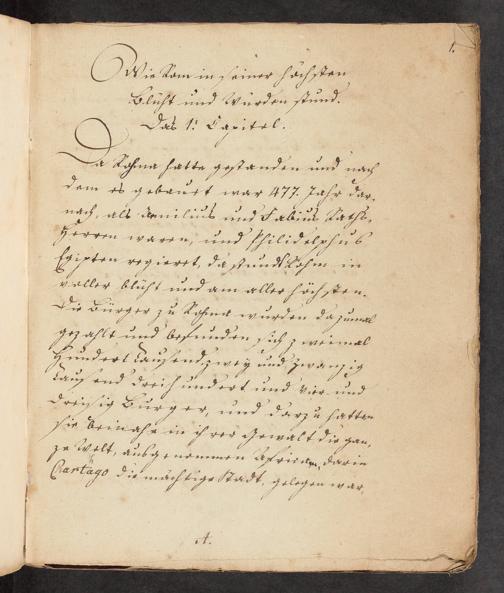 1.
Wie Rom in seiner höchsten
Blüht und Würden stund.
Das 1: Capitel.
Da Rohma hatte gestanden und nach
dem es gebauet war 477. Jahr dar-
nach, als Emilius und Fabius Raths-
Herren waren, und Philidelphus
Egipten regieret, da stundt Rohm in
voller blüht und am aller höchsten.
Die Bürger zu Rohma wurden dazumal
gezahlt und befunden sich zweimal
Hundert tausend zwey und zwanzig
tausend dreihundert und vier und
dreisig Burger, und darzu hatten
sie beinahe in ihrer Gewalt die gan-
ze Welt, ausgenommen Africam, darin
Cartago die mächtige Stadt, gelegen war
A.